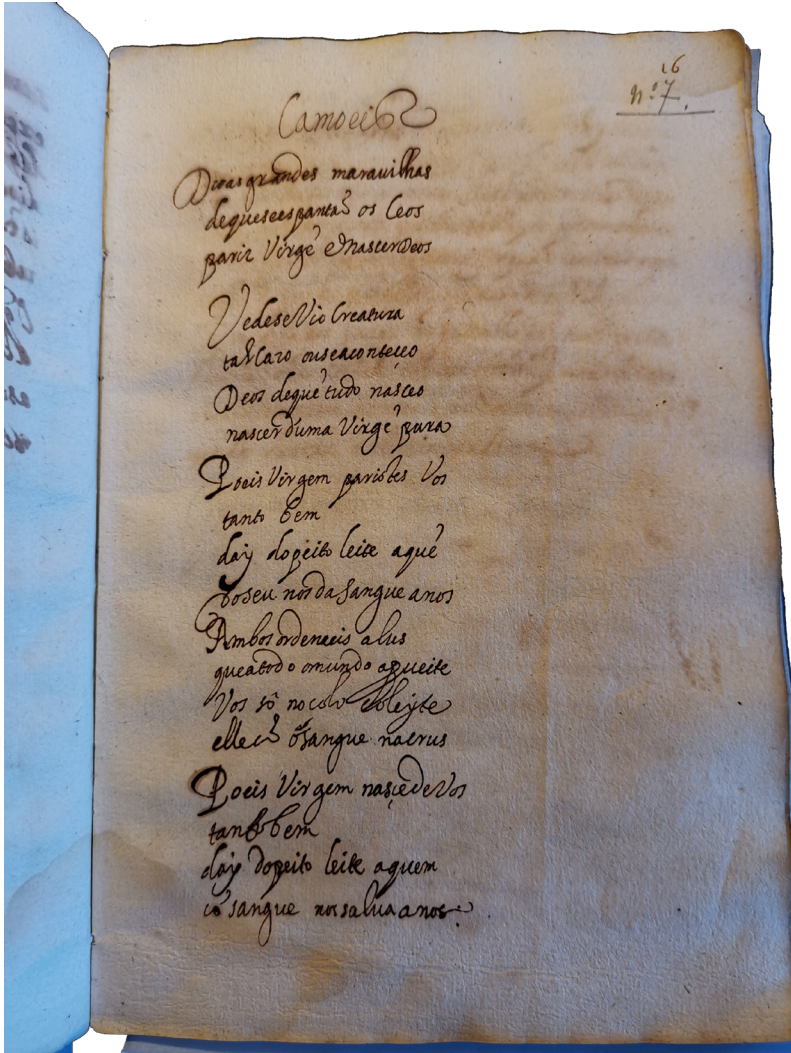 16
nº 7.
Camoeis
Duas grandes maravilhas
de que se espantaõ os Ceos
parir Virgẽ e nascer Deos
Vede se Vio Creatura
tal Cazo ou se aconteçeo
Deos de quẽ tudo nasçeo
nascer duma Virgẽ pura
Poeis Virgem paristes Vos
tanto bem
day do peito leite a quẽ
do seu nos da sangue a nos
Ambos ordeneeis a lus
que a todo o mundo aqueite
Vos so no colo leyte
elle cõ o sangue na crus
Poeis Virgem nasçe de Vos
tanto bem
day do peito leite a quem
cõ sangue nos salua a nos